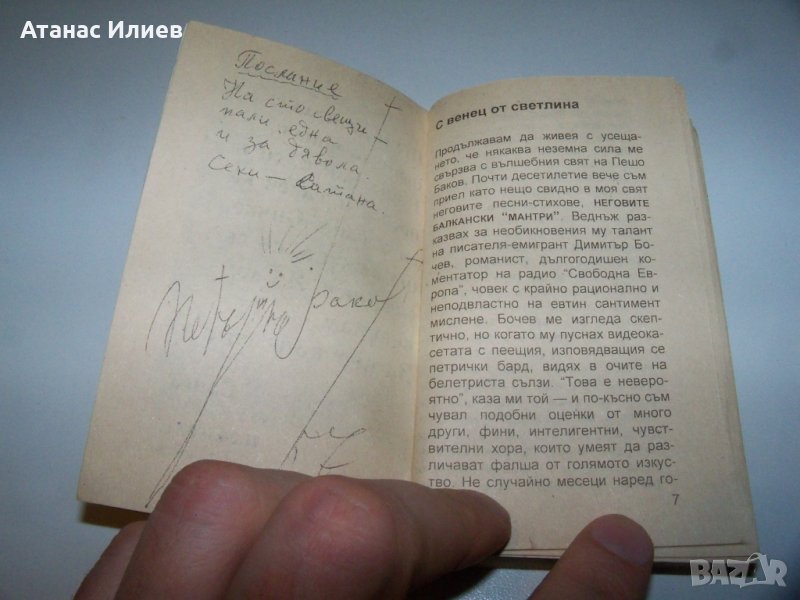 Атанас Илиев
Послание
На сто свещи –
пали една
и за дявола.
Секи – Сатана.
С венец от светлина
Продължавам да живея с усеща-
нето, че някаква неземна сила ме
свързва с вълшебния свят на Пешо
Баков. Почти десетилетие вече съм
приел като нещо свидно в моя свят
неговите песни-стихове, НЕГОВИТЕ
БАЛКАНСКИ "МАНТРИ". Веднъж раз-
казвах за необикновения му талант
на писателя-емигрант Димитър Бо-
чев, романист, дългогодишен ко-
ментатор на радио "Свободна Ев-
ропа", човек с крайно рационално и
неподвластно на евтин сантимент
мислене. Бочев ме изгледа скеп-
тично, но когато му пуснах видеока-
сетата с пеещия, изповядващия се
петрички бард, видях в очите на
белетриста сълзи. "Това е неверо-
ятно", каза ми той — и по-късно съм
чувал подобни оценки от много
други, фини, интелигентни, чувс-
твителни хора, които умеят да раз-
личават фалша от голямото изкус-
тво. Не случайно месеци наред го-
7
BAZAR